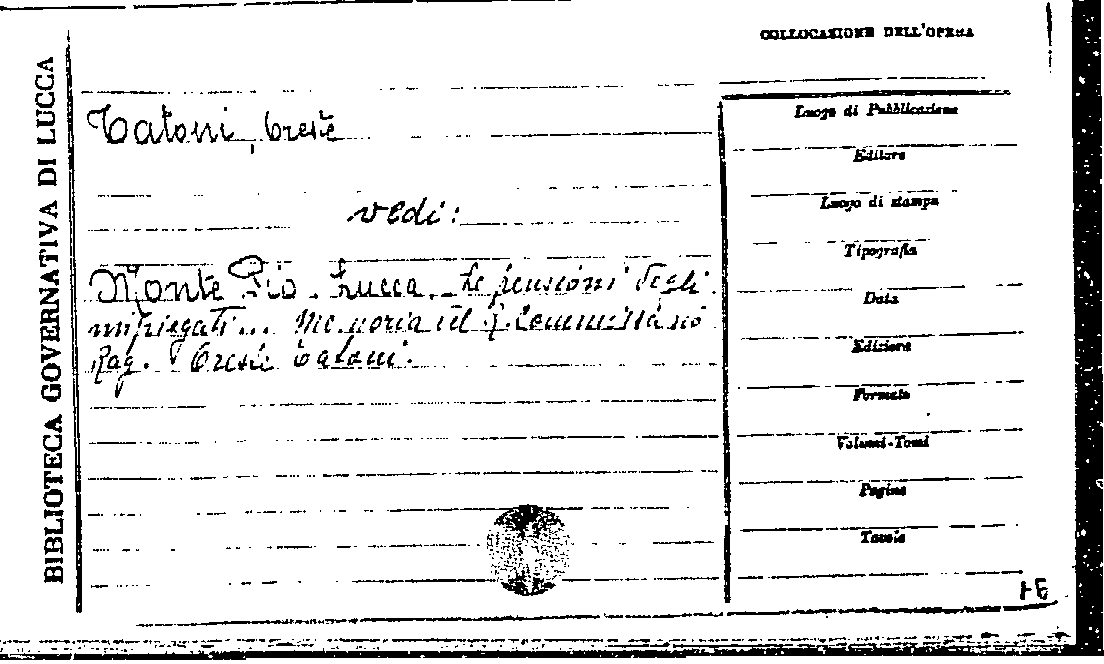 BIBLIOTECA GOVERNATIVA DI LUCCA
COLLOCAZIONE DELL'OPERA
Tatoni, Oreste
vedi:
Monte Pio. Lucca. Le pensioni degli
impiegati... Memoria del R. Commissario
Rag. Oreste Tatoni.
Luogo di Pubblicazione
Editore
Luogo di stampa
Tipografia
Data
Edizione
Formato
Volumi-Tomi
Pagine
Tavole